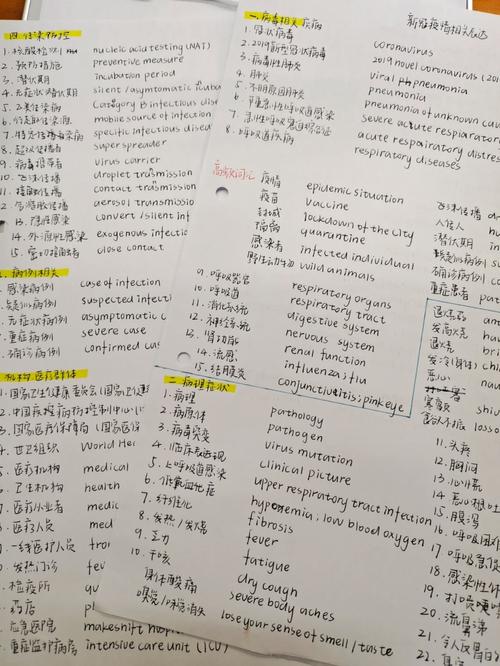 四.传染防控
1.核酸检测 nucleic acid testing (NAT)
2.预防措施 preventive measure
3.潜伏期 incubation period
4.无症状潜伏期 silent / asymptomatic
5.乙类传染病 Category B infectious
mobile source of infection
specific infectious
8.超级传播者 super spreader
9.病毒携带者 virus carrier
10.飞沫传播 droplet transmission
11.接触传播 contact transmission
aerosol transmission
13.隐性感染 convert / silent inf
14.外源性感染 exogenous infectio
15.密切接触者 close contact
病例相关
感染病例 case of infection
疑似病例 suspected infecti
无症状病例 asymptomatic c
重症病例 severe case
确诊病例 confirmed ca
机构、医疗群体
1.国家卫生健康委员会
2.中国疾病预防控制中心
3.国家医疗保障局
4.世卫组织 World Hea
5.医疗机构 medical
6.卫生机构 health
7.医疗从业者 medic
8.医疗人员 med
一线医护人员
发热门诊
检疫所
药店
应急医院 makeshift hosp
重症监护病房 intensive care unit (ICU)
新冠疫情相关
一.病毒相关疾病
1.冠状病毒 coronavirus
2.2019新型冠状病毒 2019 novel coronavirus (20
3.病毒性肺炎 viral pneumonia
4.肺炎 pneumonia
5.不明原因肺炎 pneumonia of unknown cau
6.严重急性呼吸道感染 severe acute respiarator
7.急性呼吸窘迫综合征 acute respairatory distres
8.呼吸道疾病 respiratory diseases
高频词汇
疫情 epidemic situation
疫苗 vaccine
封城 lockdown of the city
隔离 quarantine
感染者 infected individual
野生动物 wild animals
9.呼吸器官 respiratory organs
10.呼吸道 respiratory tract
11.消化系统 digestive system
12.神经系统 nervous system
13.肾功能 renal function
14.流感 influenza; flu
15.结膜炎 conjunctivitis; pink eye
飞沫传播
人传人
潜伏期
疑似病例
确诊病例
重症患者
退烧药
发高烧
退烧
发冷(身体)
恶心
寒颤
二.病理症状
1.病理 pathology
2.病原体 pathogen
3.病毒突变 virus mutation
4.临床表现 clinical picture
5.上呼吸道感染 upper respiratory tract infection
6.低氧血症 hypoxemia; low blood oxygen
7.纤维化 fibrosis
8.发热/发烧 fever
9.乏力 fatigue
10.干咳 dry cough
身体酸痛 severe body aches
嗅觉/味觉消失 lose your sense of smell / taste
11.头疼
12.胸闷
13.心悸
14.恶心呕吐
15.腹泻
16.呼吸困难
17.呼吸急促
18.感染性休
19.打喷嚏
20.流鼻涕
21.令人反胃
22.